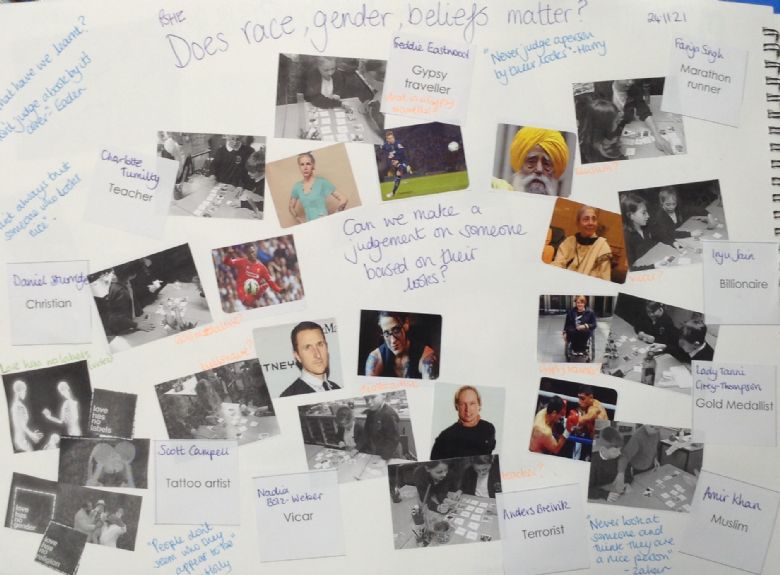 PSHE
Does race, gender, beliefs matter?
24.11.21
what have we learnt?
Don't judge a book by its
cover" - Eaden
Freddie Eastwood
Gypsy
traveller
"Never judge a person
by their looks" - Harry
Fauja Singh
Marathon
runner
Charlotte
Tumilty
Teacher
not always that
someone who looks
nice" -
Can we make a
judgement on someone
based on their
looks?
Christian
Billionaire
billionaire?
vicar?
Love has no labels
love
has
no
labels
Lady Tanni
Grey-Thompson
Gold Medallist
Scott Campbell
Tattoo artist
Nadia
Bolz-Weber
Vicar
teacher?
Anders Breivik
Terrorist
Amir Khan
Muslim
love
has no
gender
love
has no
religion
"People don't
seem who they
appear to be"
Holly
"Never look at
someone and
think they are
a nice person"
- Zaker